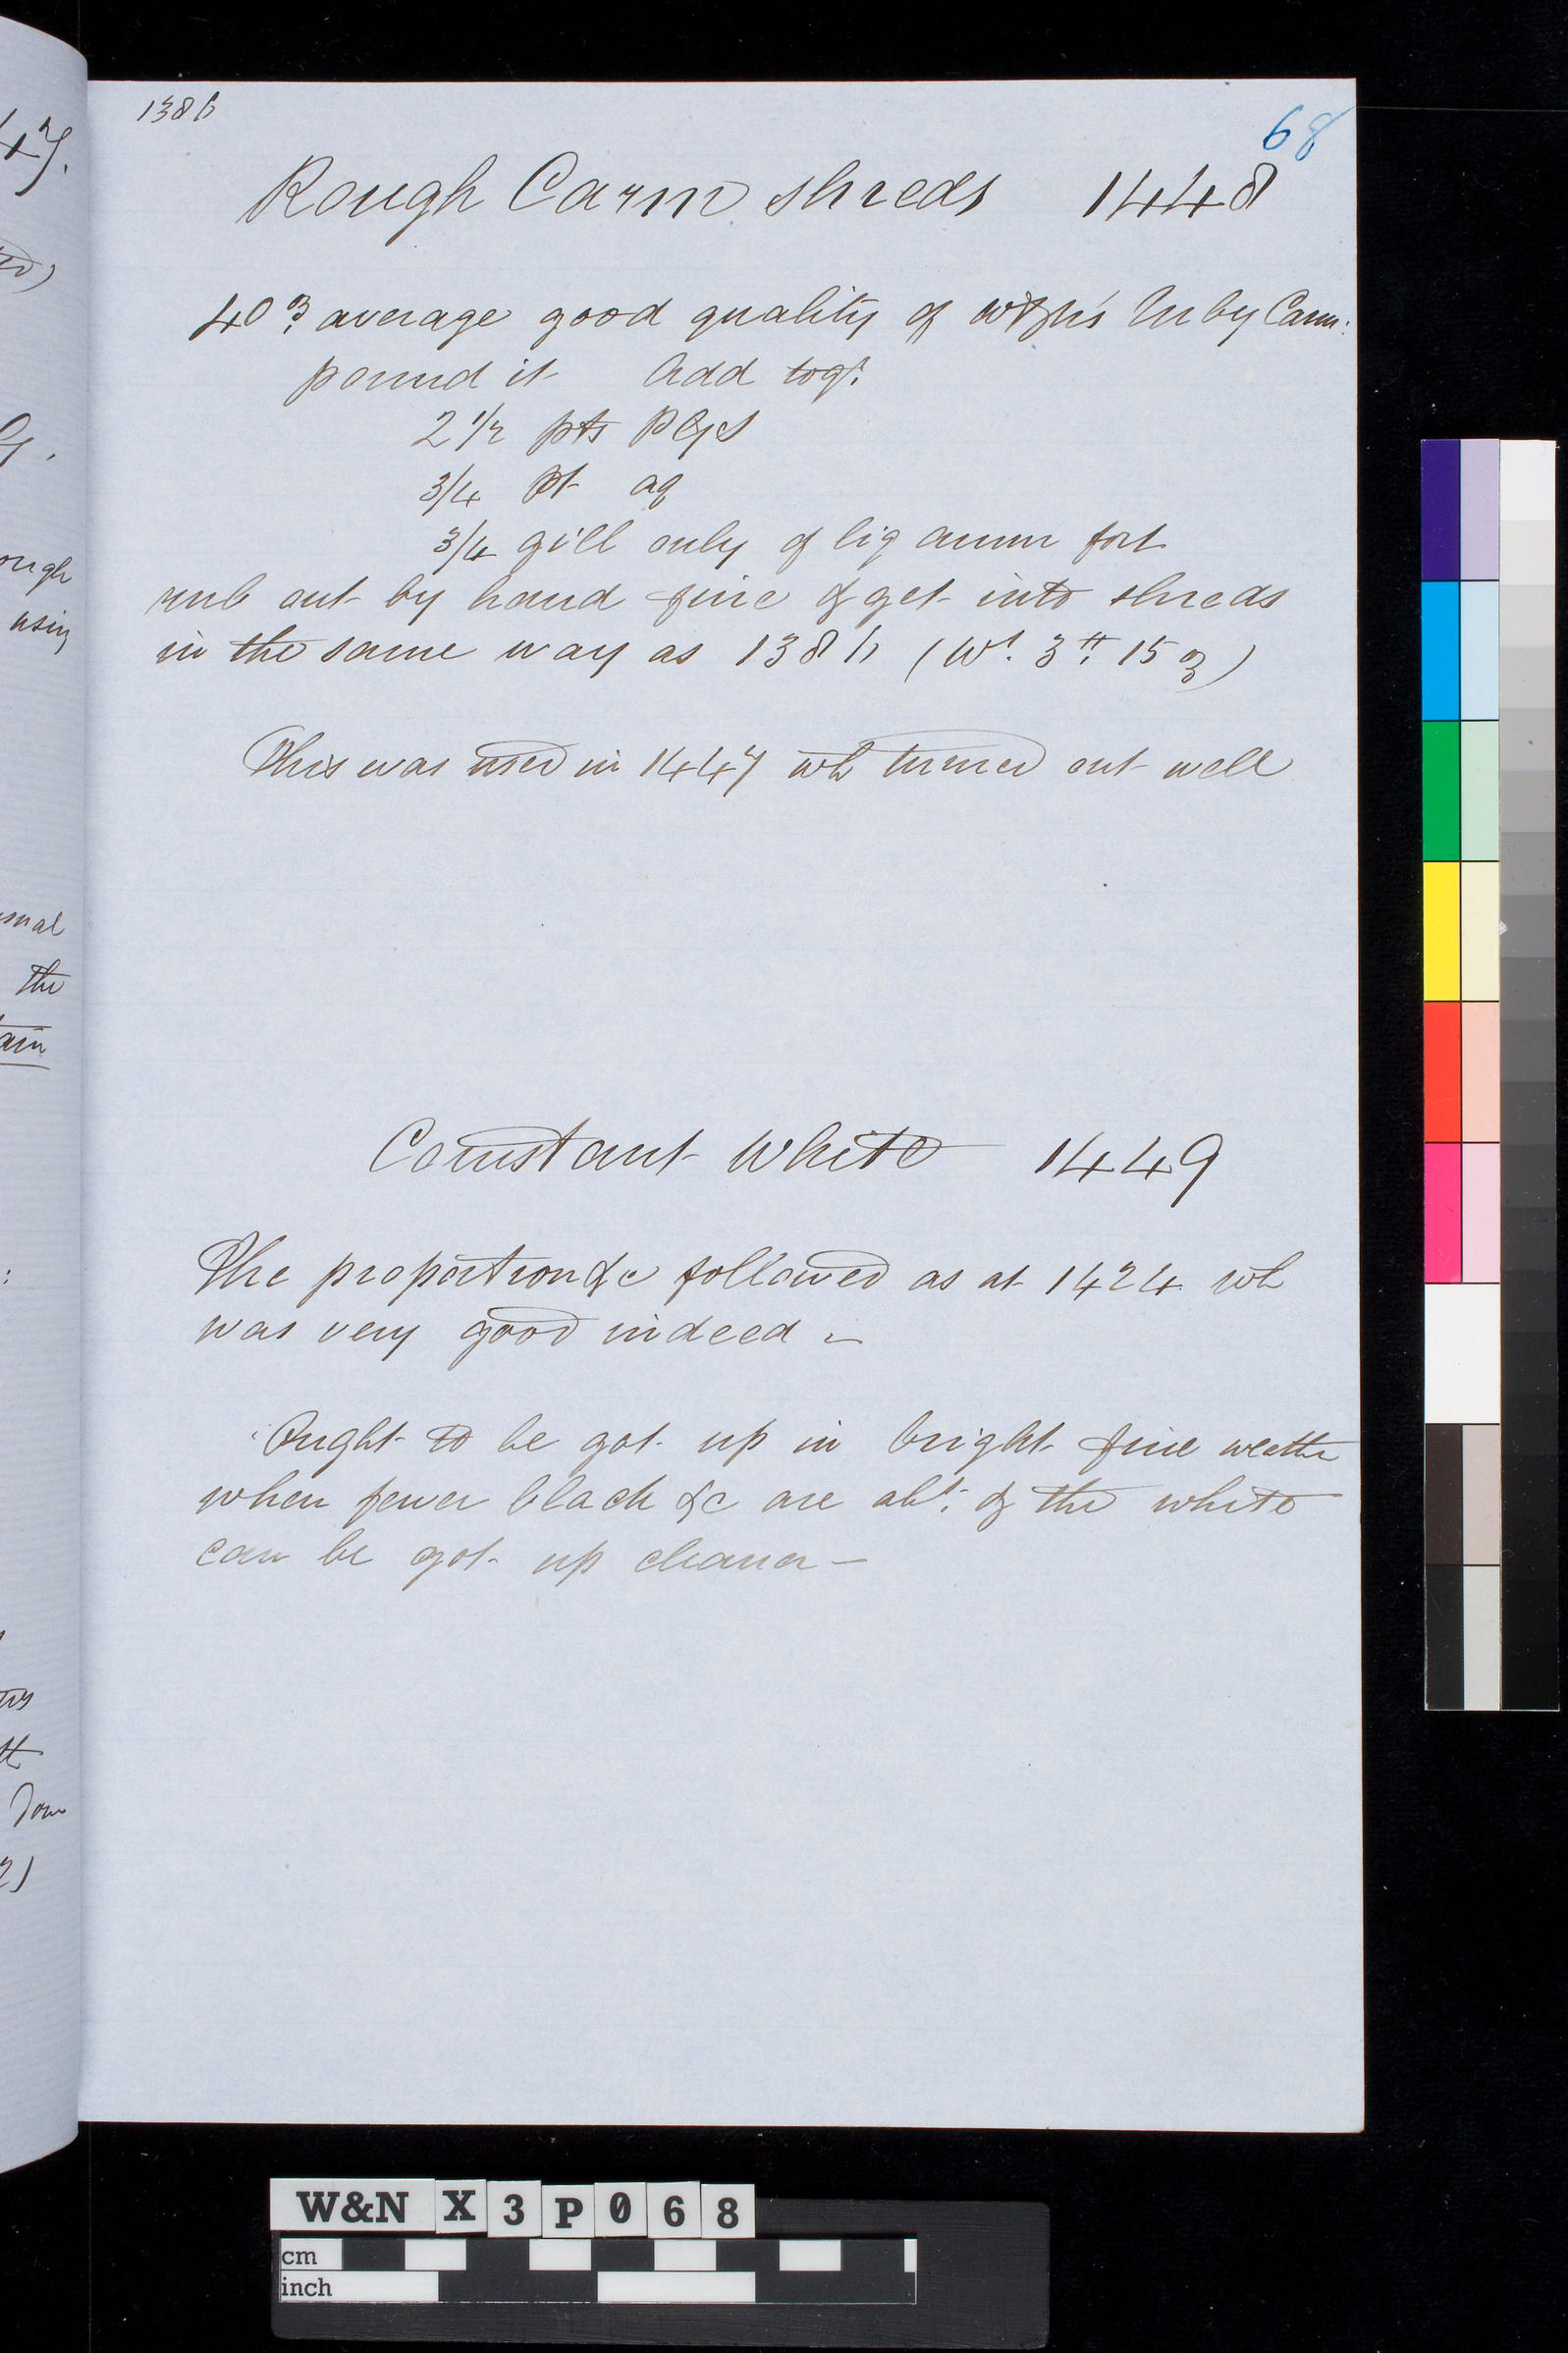 1386
68
Rough Carm shreds 1448
40 ℥ average good quality of Ruby Carm:
pound it Add togr.
2 1/2 pts PGys
3/4 pt aq
3/4 gill only of liq amm fort
rub out by hand fine & get into shreds
in the same way as 1386 (Wt. 3 ℔ 15 ℥)
This was used in 1447 wh turned out well
Constant White 1449
The proportion &c followed as at 1424 wh
was very good indeed –
Ought to be got up in bright fine weather
when fewer black &c are abt. & the white
can be got up cleaner –
47.
ough
using
usual
the
tain
W&N X 3 P 0 6 8
cm
inch